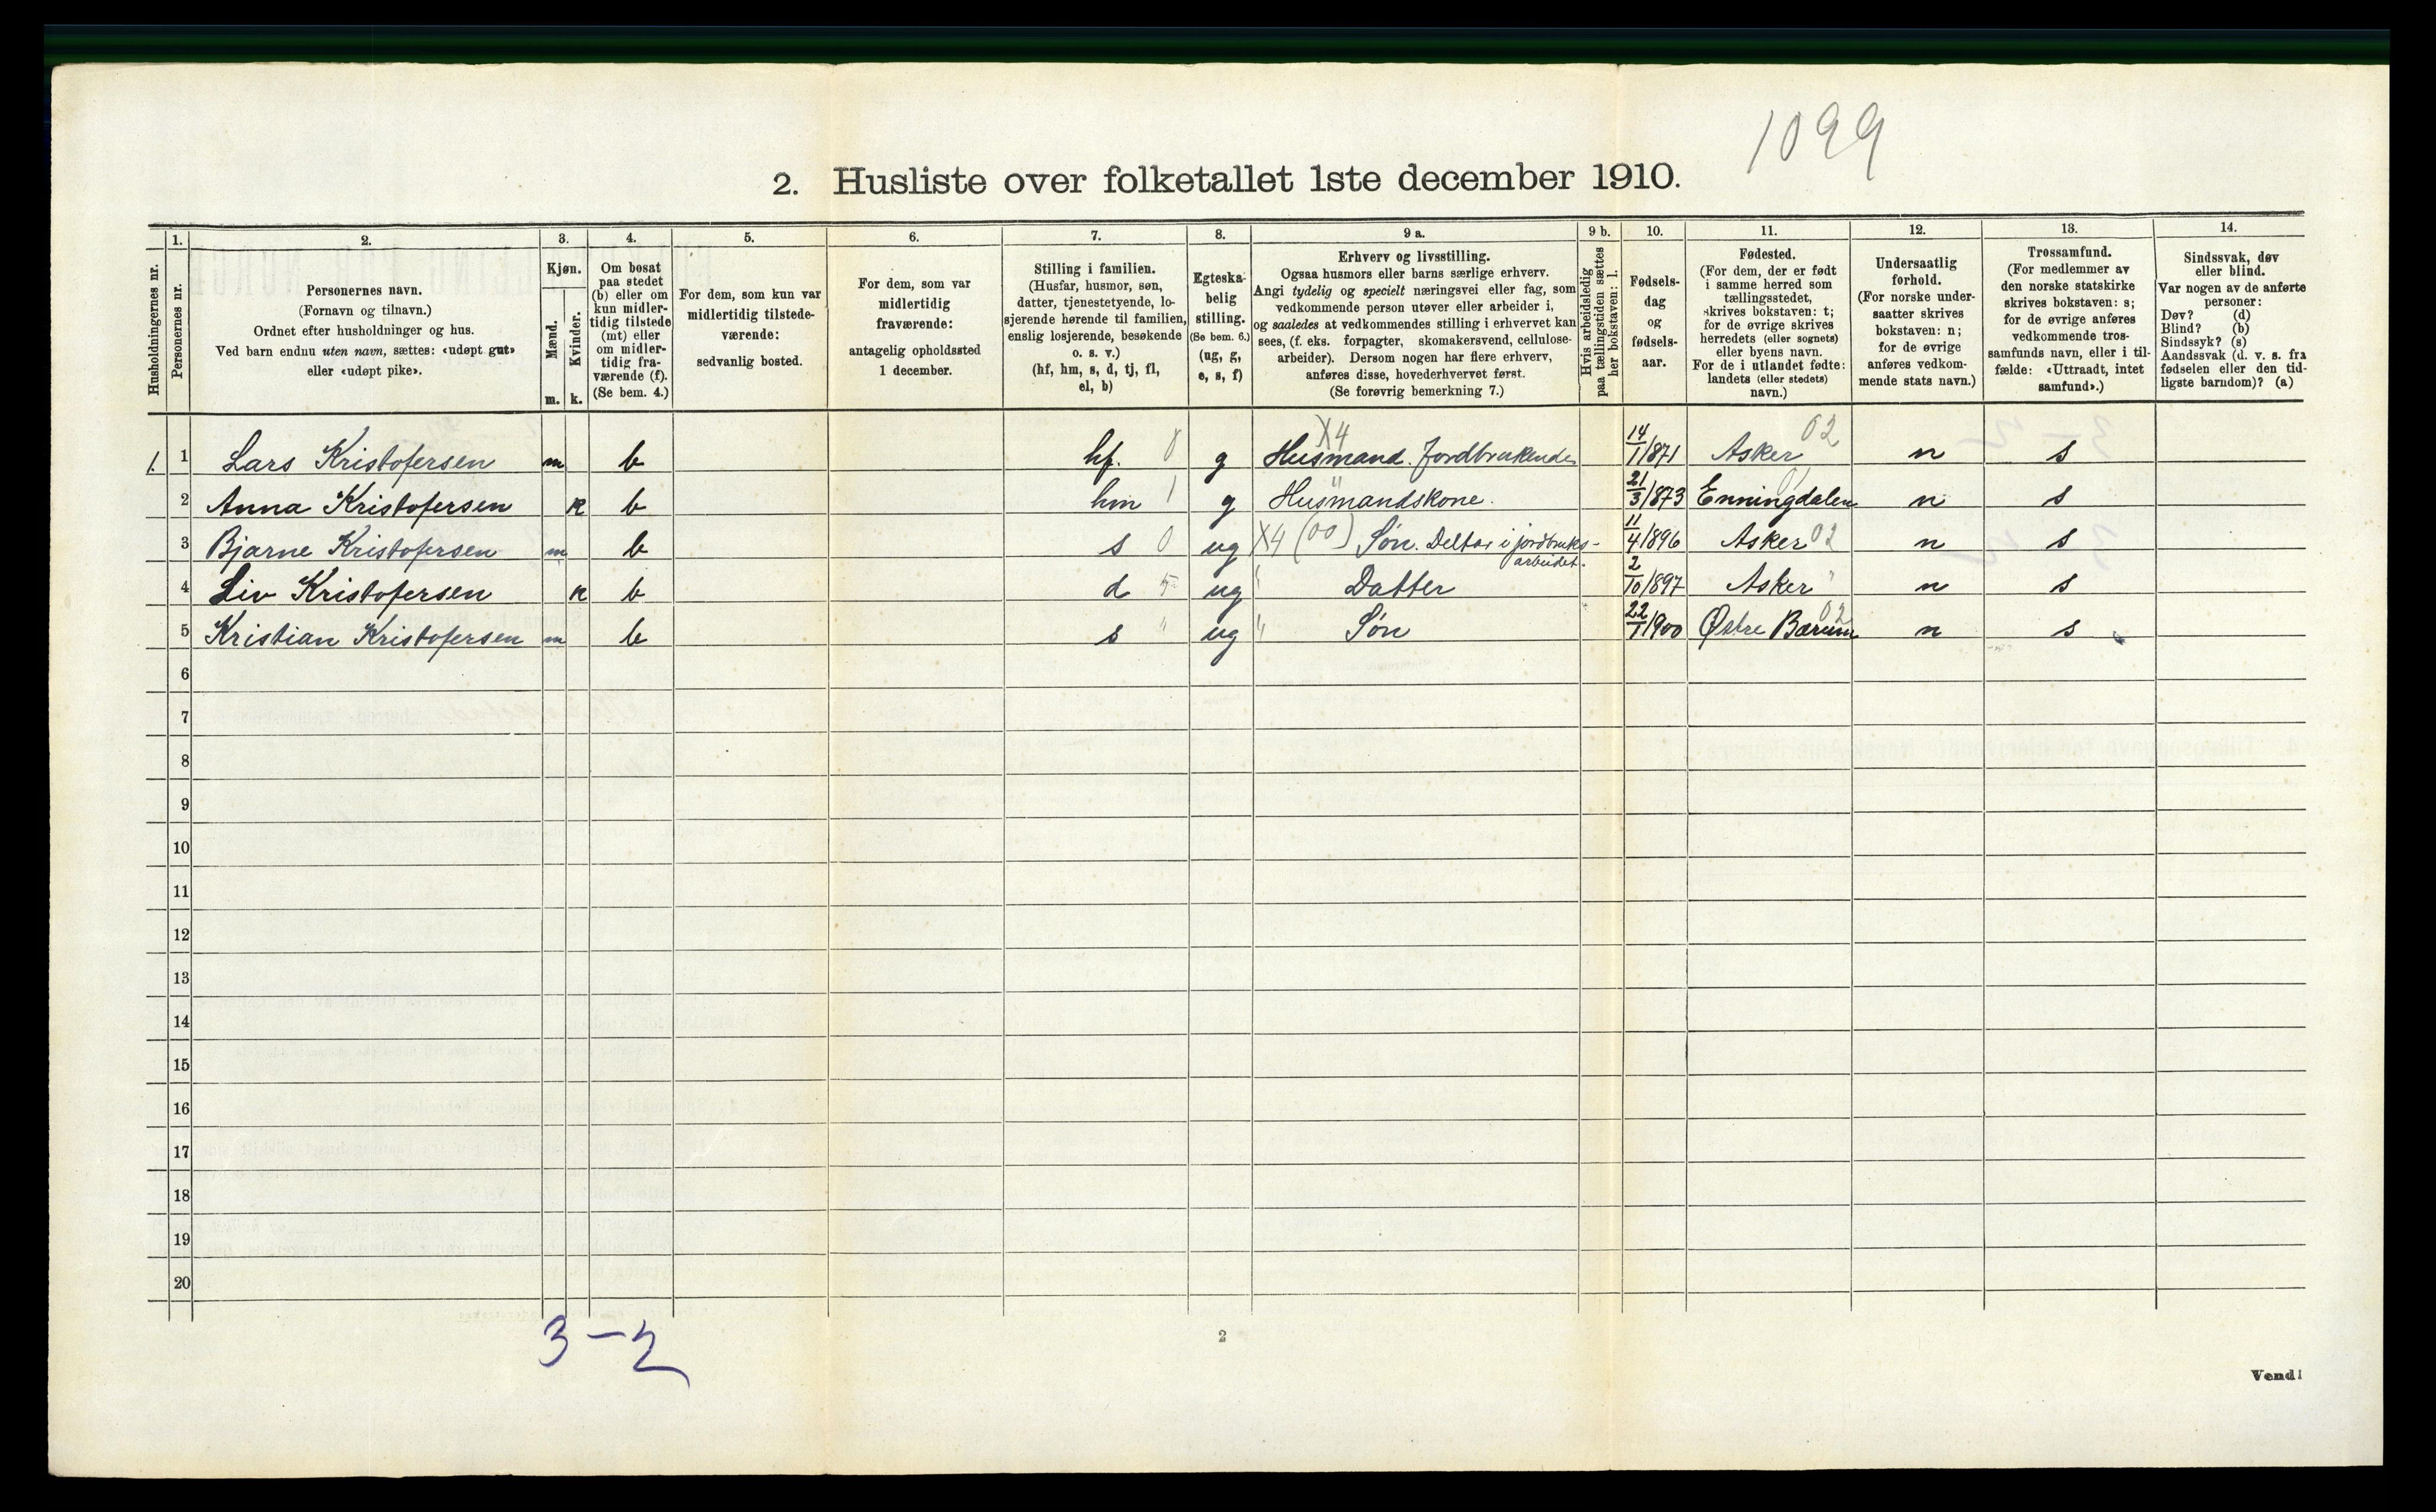 1099
2. Husliste over folketallet 1ste december 1910.
Husholdningernes nr.
1.
Personernes nr.
2.
Personernes navn.
(Fornavn og tilnavn.)
Ordnet efter husholdninger og hus.
Ved barn endnu uten navn, sættes: «udøpt gut»
eller «udøpt pike».
3.
Kjøn.
Mænd.
Kvinder.
m.
k.
4.
Om bosat
paa stedet
(b) eller om
kun midler-
tidig tilstede
(mt) eller
om midler-
tidig fra-
værende (f).
(Se bem. 4.)
5.
For dem, som kun var
midlertidig tilstede-
værende:
sedvanlig bosted.
6.
For dem, som var
midlertidig
fraværende:
antagelig opholdssted
1 december.
7.
Stilling i familien.
(Husfar, husmor, søn,
datter, tjenestetyende, lo-
sjerende hørende til familien,
enslig losjerende, besøkende
o. s. v.)
(hf, hm, s, d, tj, fl,
el, b)
8.
Egteska-
belig
stilling.
(Se bem. 6.)
(ug, g,
e, s, f)
9 a.
Erhverv og livsstilling.
Ogsaa husmors eller barns særlige erhverv.
Angi tydelig og specielt næringsvei eller fag, som
vedkommende person utøver eller arbeider i,
og saaledes at vedkommendes stilling i erhvervet kan
sees, (f. eks. forpagter, skomakersvend, cellulose-
arbeider). Dersom nogen har flere erhverv,
anføres disse, hovederhvervet først.
(Se forøvrig bemerkning 7.)
9 b.
Hvis arbeidsledig
paa tællingstiden sættes
her bokstaven: l.
10.
Fødsels-
dag
og
fødsels-
aar.
11.
Fødested.
(For dem, der er født
i samme herred som
tællingsstedet,
skrives bokstaven: t;
for de øvrige skrives
herredets (eller sognets)
eller byens navn.
For de i utlandet fødte:
landets (eller stedets)
navn.)
12.
Undersaatlig
forhold.
(For norske under-
saatter skrives
bokstaven: n;
for de øvrige
anføres vedkom-
mende stats navn.)
13.
Trossamfund.
(For medlemmer av
den norske statskirke
skrives bokstaven: s;
for de øvrige anføres
vedkommende tros-
samfunds navn, eller i til-
fælde: «Uttraadt, intet
samfund».)
14.
Sindssvak, døv
eller blind.
Var nogen av de anførte
personer:
Døv? (d)
Blind? (b)
Sindssyk? (s)
Aandssvak (d. v. s. fra
fødselen eller den tid-
ligste barndom)? (a)
1. 1 Lars Kristofersen m b hf. 0 g X4 Husmand. Jordbrukende 14/1/871 Asker 02 n s
2 Anna Kristofersen k b hm 1 g " Husmandskone. 21/3/873 Enningdalen 01 n s
3 Bjarne Kristofersen m b s 0 ug X4 (00) Søn. Deltar i jordbruks-
arbeidet. 11/4/896 Asker 02 n s
4 Liv Kristofersen k b d 5 ug " Datter 2/10/897 Asker " n s
5 Kristian Kristofersen m b s " ug " Søn 22/1/900 Østre Bærum 02 n s
6
7
8
9
10
11
12
13
14
15
16
17
18
19
20
3-2
2
Vend!